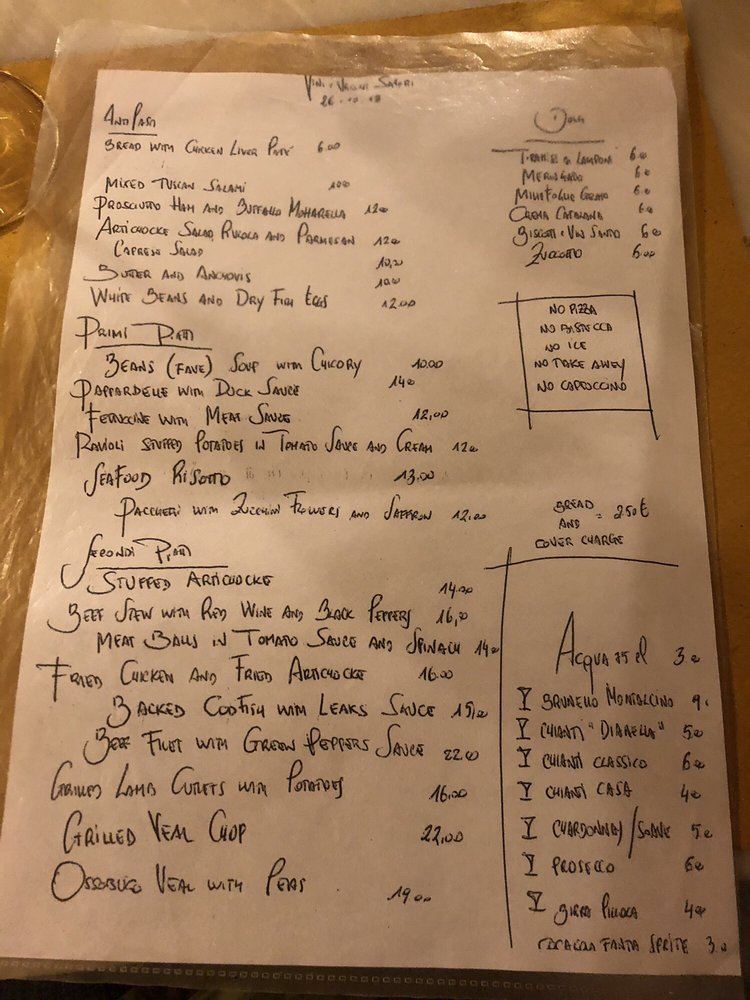 Vini e Vecchi Sapori
26.10.18
Antipasti
Bread with Chicken Liver Paté 6.00
Mixed Tuscan Salami 10.00
Prosciutto Ham and Buffalo Mozzarella 12.00
Artichocke Salad, Rucola and Parmesan 12.00
Caprese Salad 10,00
Butter and Anchovis 10.00
White Beans and Dry Fish Eggs 12.00
Primi Piatti
Beans (Fave) Soup with Chicory 10.00
Pappardelle with Duck Sauce 14.00
Fettuccine with Meat Sauce 12,00
Ravioli stuffed Potatoes in Tomato Sauce and Cream 12.00
Seafood Risotto 13.00
Paccheri with Zucchini Flowers and Saffron 12,00
Secondi Piatti
Stuffed Artichocke 14.00
Beef Stew with Red Wine and Black Peppers 16,00
Meat Balls in Tomato Sauce and Spinach 14.00
Fried Chicken and Fried Artichocke 16.00
Backed Codfish with Leaks Sauce 15,00
Beef Filet with Green Peppers Sauce 22.00
Grilled Lamb Cutlets with Potatoes 16.00
Grilled Veal Chop 22,00
Ossobuco Veal with Peas 19.00
Dolci
Tiramisù ai Lamponi 6.00
Meringato 6.00
Millefoglie 6.00
Crema Catalana 6.00
Biscotti e Vin Santo 6.00
Zuccotto 6.00
NO PIZZA
NO BISTECCA
NO ICE
NO TAKE AWAY
NO CAPPUCCINO
BREAD
AND = 2.50 €
COVER CHARGE
Acqua 75 cl 3.00
BRUNELLO MONTALCINO 9.
CHIANTI "DIANELLA" 5.00
CHIANTI CLASSICO 6.00
CHIANTI CASA 4.00
CHARDONNAY/SOAVE 5.00
PROSECCO 6.00
BIRRA PICCOLA 4.00
COCACOLA FANTA SPRITE 3.00